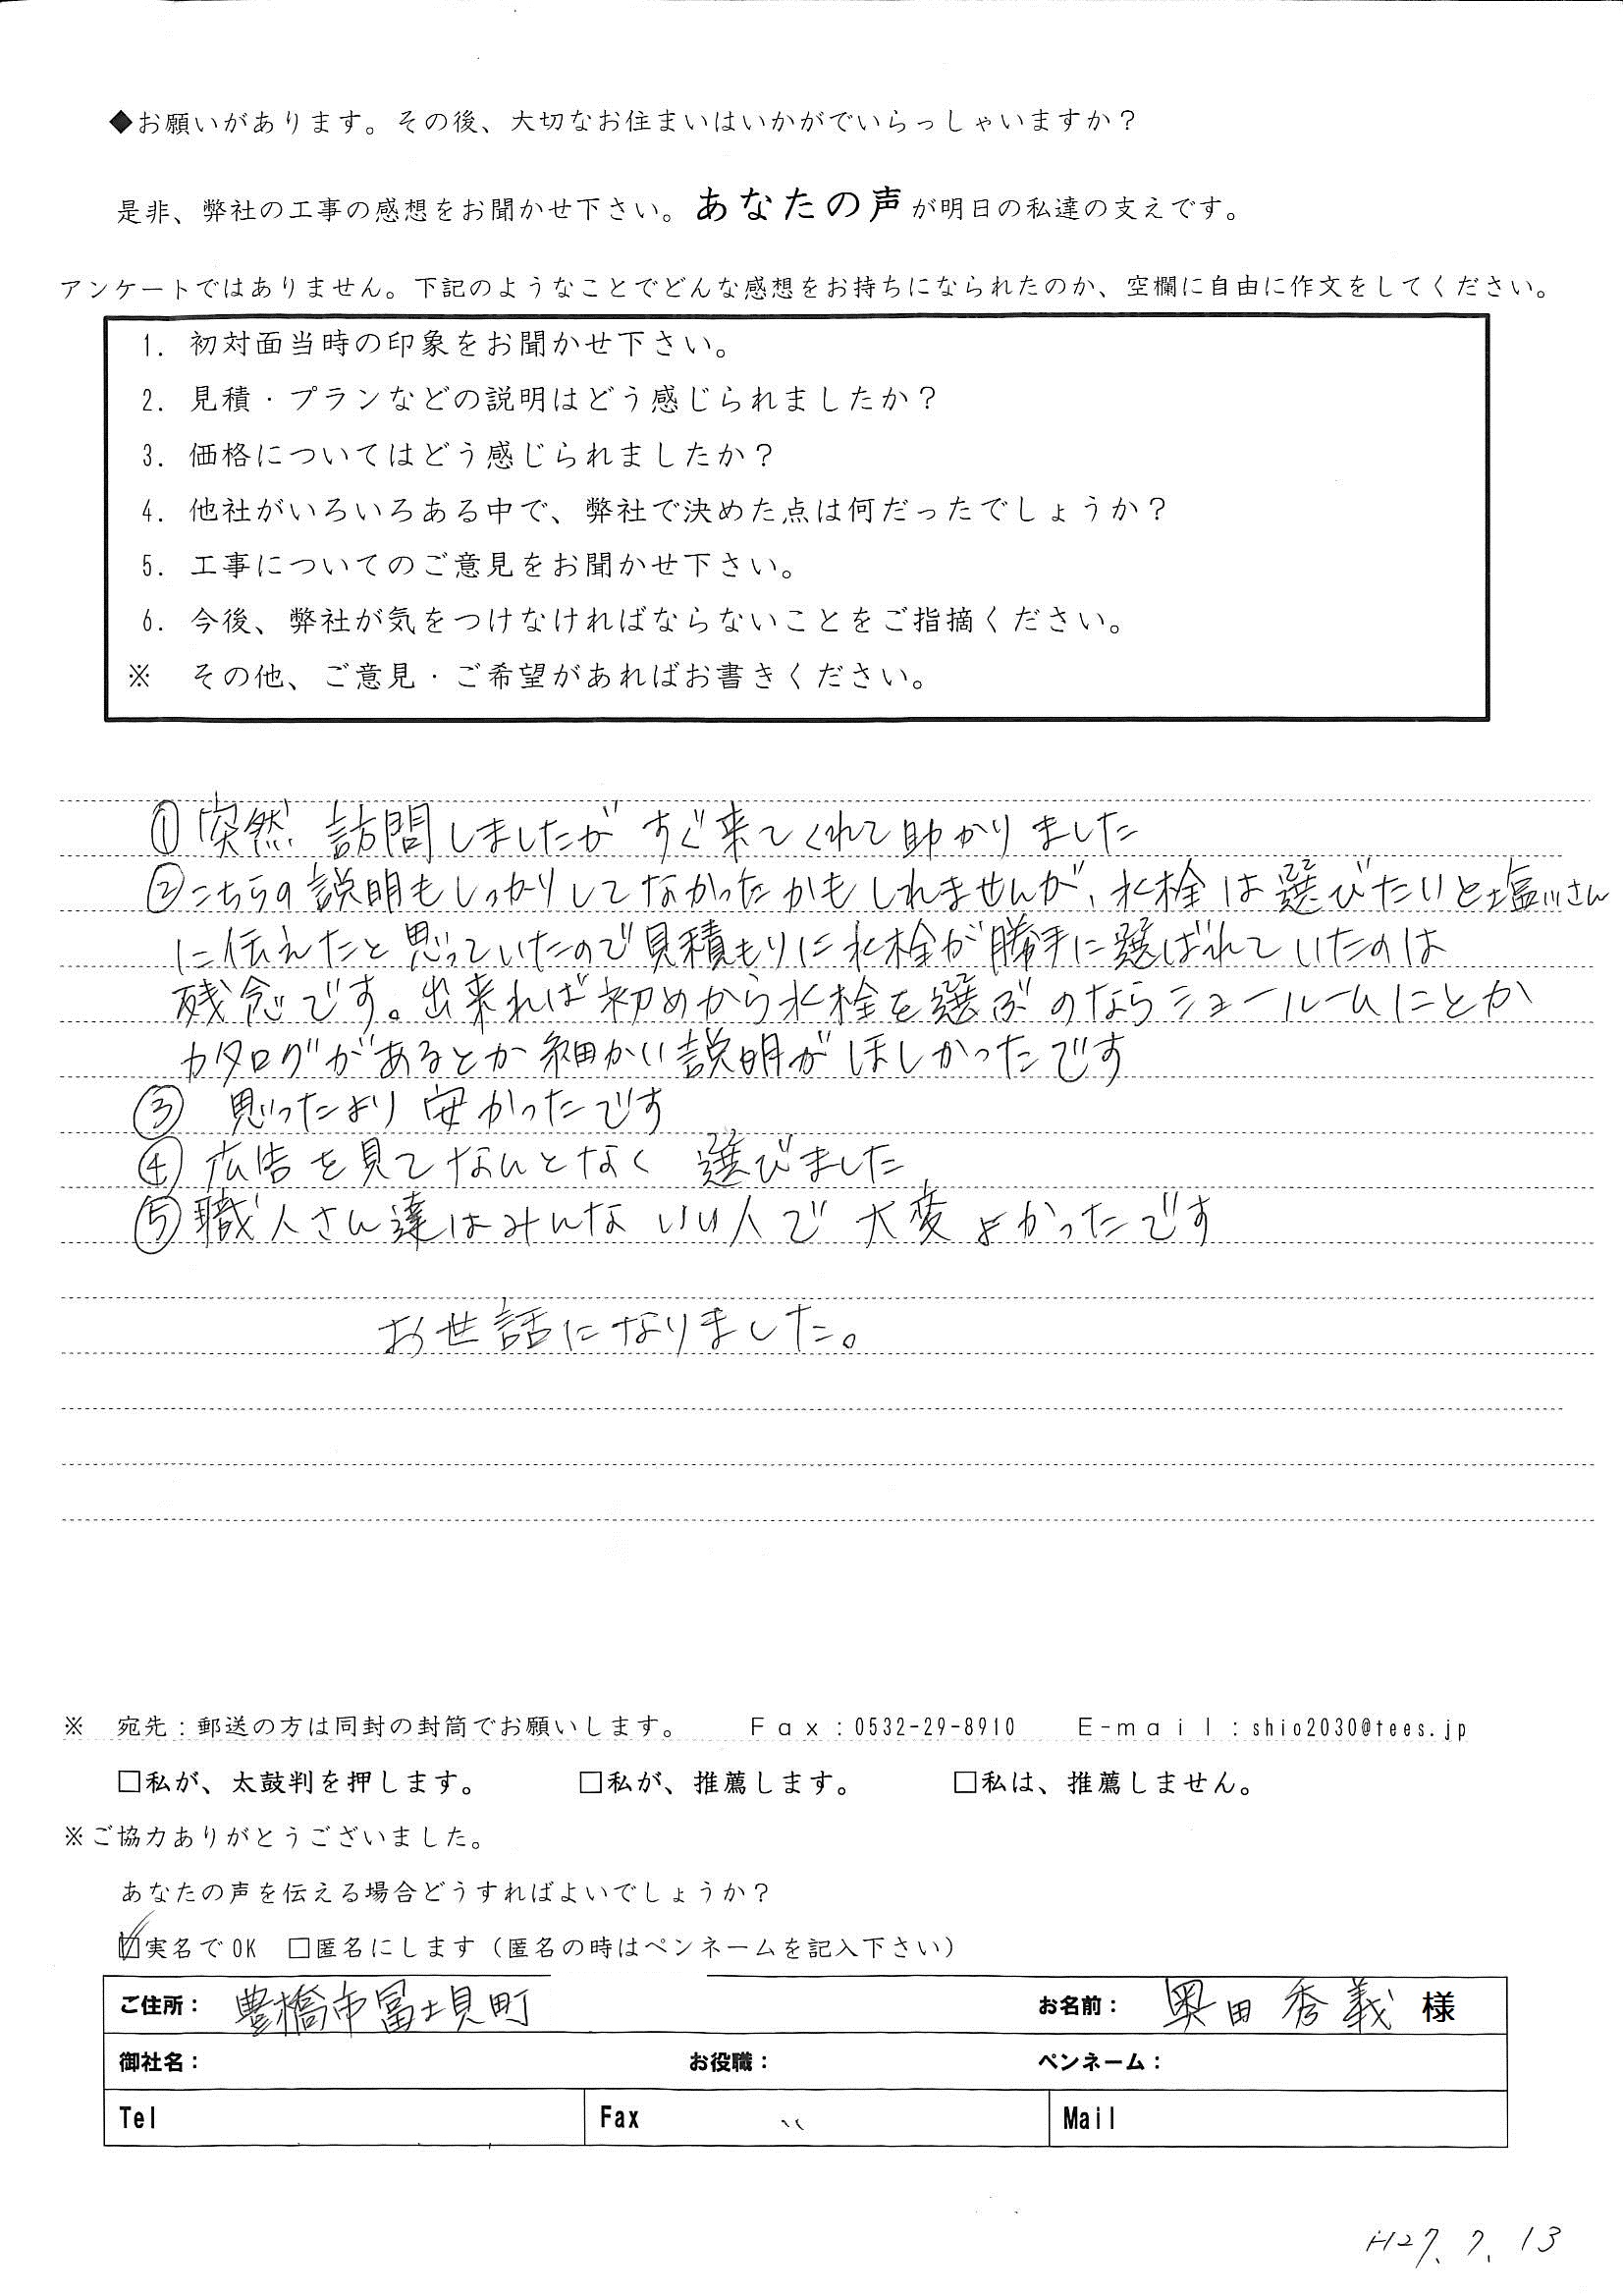 ◆お願いがあります。その後、大切なお住まいはいかがでいらっしゃいますか？
是非、弊社の工事の感想をお聞かせ下さい。あなたの声が明日の私達の支えです。
アンケートではありません。下記のようなことでどんな感想をお持ちになられたのか、空欄に自由に作文をしてください。
1. 初対面当時の印象をお聞かせ下さい。
2. 見積・プランなどの説明はどう感じられましたか？
3. 価格についてはどう感じられましたか？
4. 他社がいろいろある中で、弊社で決めた点は何だったでしょうか？
5. 工事についてのご意見をお聞かせ下さい。
6. 今後、弊社が気をつけなければならないことをご指摘ください。
※ その他、ご意見・ご希望があればお書きください。
①突然 訪問しましたが すぐ来てくれて助かりました
②こちらの説明もしっかりしてなかったかもしれませんが、水栓は選びたいと塩川さん
に伝えたと思っていたので見積もりに水栓が勝手に選ばれていたのは
残念です。出来れば初めから水栓を選ぶのならショールームにとか
カタログがあるとか細かい説明がほしかったです
③ 思ったより安かったです
④ 広告を見てなんとなく 選びました
⑤ 職人さん達はみんな いい人で 大変よかったです
お世話になりました。
※ 宛先：郵送の方は同封の封筒でお願いします。 Fax：0532-29-8910 E-mail：shio2030@tees.jp
□私が、太鼓判を押します。 □私が、推薦します。 □私は、推薦しません。
※ご協力ありがとうございました。
あなたの声を伝える場合どうすればよいでしょうか？
☑実名でOK □匿名にします（匿名の時はペンネームを記入下さい）
ご住所： 豊橋市冨士見町 お名前： 奥田 秀義 様
御社名： お役職： ペンネーム：
Tel Fax Mail
H27.7.13